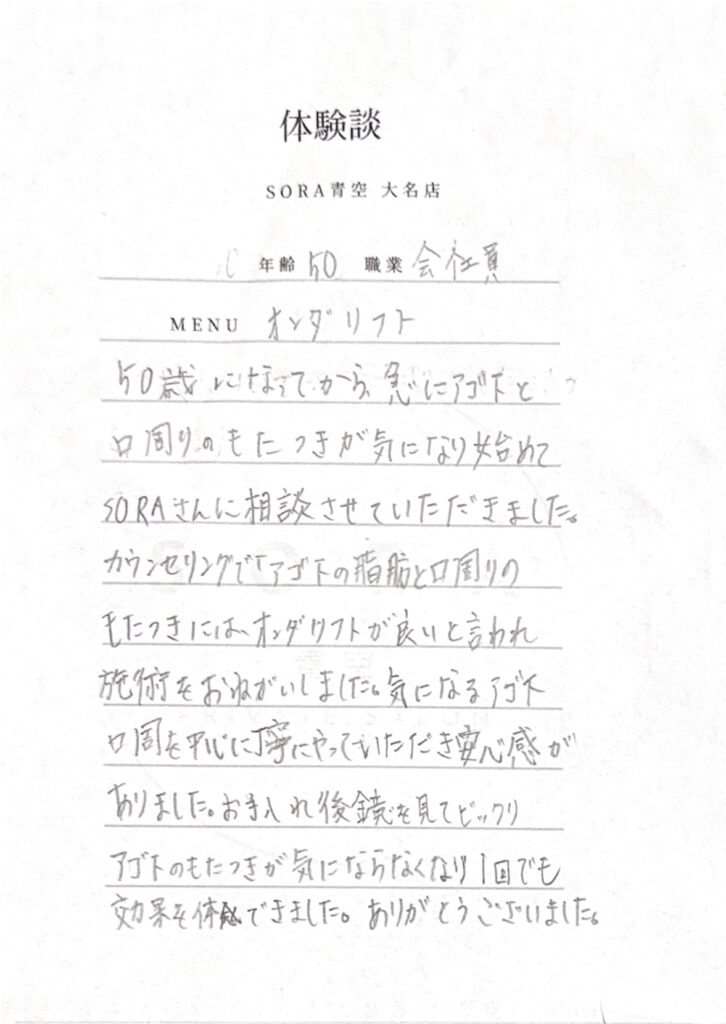 体験談
SORA青空 大名店
年齢 50 職業 会社員
MENU オンダリフト
50歳になってから、急にアゴ下と
口周りのもたつきが気になり始めて
SORAさんに相談させていただきました。
カウンセリングでアゴ下の脂肪と口周りの
もたつきには、オンダリフトが良いと言われ
施術をおねがいしました。気になるアゴ下
口周を中心に丁寧にやっていただき安心感が
ありました。お手入れ後鏡を見てビックリ
アゴ下のもたつきが気にならなくなり1回でも
効果を体感できました。ありがとうございました。